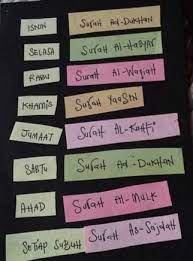 ISNIN Surah Ad-Dukhan
SELASA Surah Al-Hasyar
RABU Surah Al-Waqiah
KHAMIS Surah YaaSin
JUMAAT Surah AL-Kahfi
SABTU Surah Ad-Dukhan
AHAD Surah Al-Mulk
SETIAP SUBUH Surah As-Sajdah